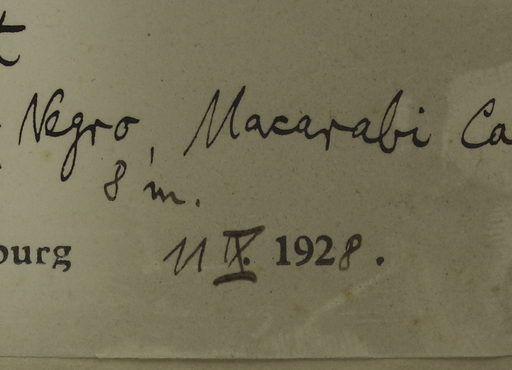 Negro, Macarabi Ca
8 m.
burg 11 IX. 1928.